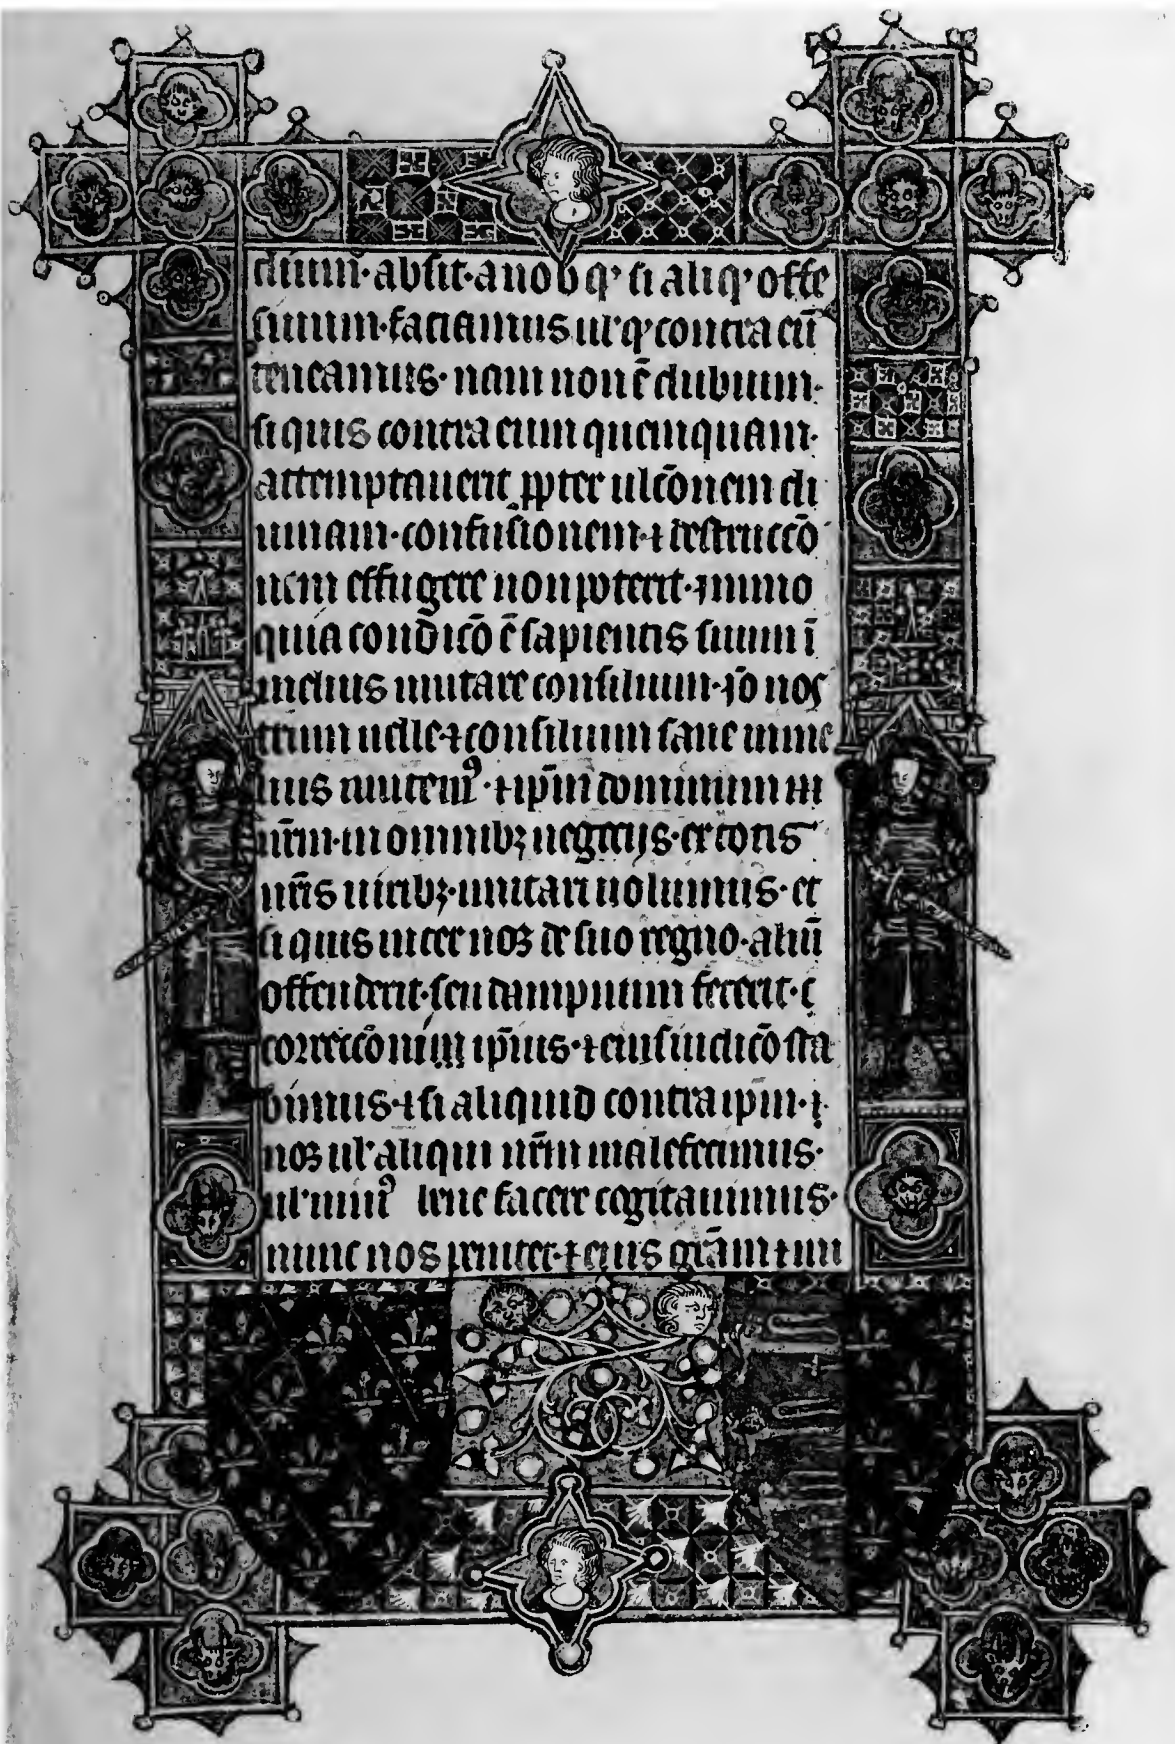 absit · a nob qꝰ si aliqꝰ offe
faciamus ul' qꝰ contra eū
teneamus · nam non ē dubium ·
si quis contra eum quemquam ·
attemptauerit ꝓpter ulcōnem di
uinam · confusionem · ⁊ destruccō
nem effugere non poterit · immo
quia condicō ē sapientis
melius mutare consilium · iō nos
trum uelle ⁊ consilium sane
mutemꝰ · ⁊ ip̄m dominum
nr̄m · in omnibꝫ negocijs · et totis
nr̄is uiribꝫ · uolumus · et
si quis inter nos de suo regno · aliū
offenderit · seu dampnum fecerit ·
ip̄ius · ⁊ eius iudicō sta
bimus · ⁊ si aliquid contra ip̄m ·
nos ul' aliqui nr̄m malefecimus ·
ul' facere cogitauimus ·
nunc nos penitet · ⁊ eius grām